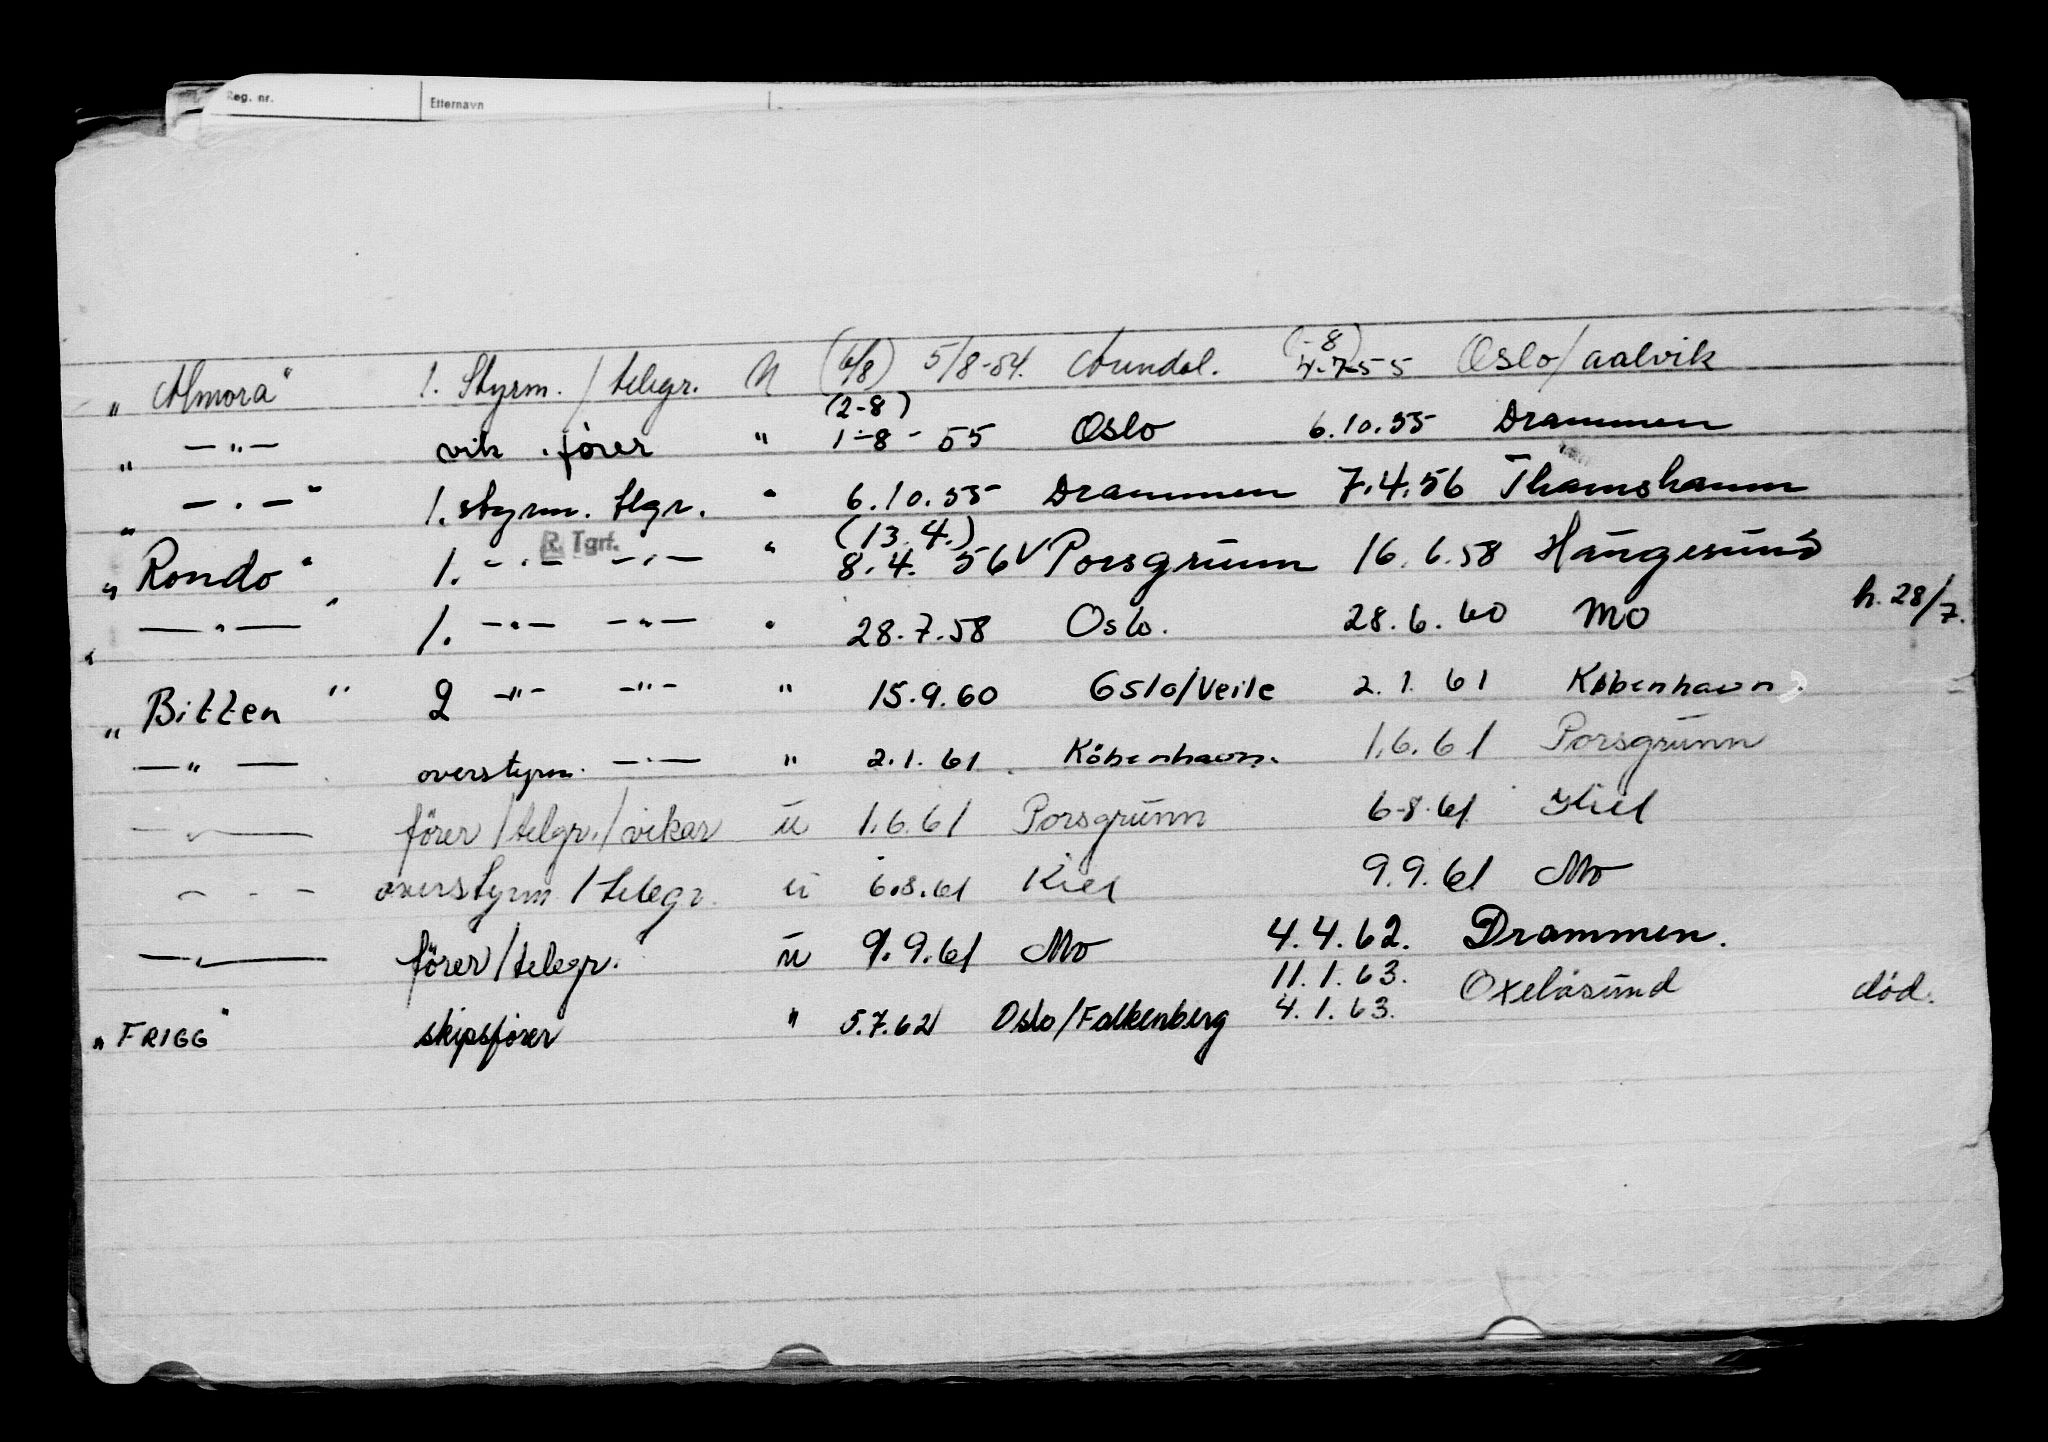 Reg. nr. Etternavn
„ Almora" 1. Styrm. / telegr. N (6/8) 5/8-54. Arendal. (-8) 4.7.55 Oslo/aalvik
„ —"— vik. fører " (2-8) 1-8-55 Oslo 6.10.55 Drammen
„ —"—" 1. styrm. tlgr. " 6.10.55 Drammen 7.4.56 Thamshamn
„ Rondo" 1. —"— R. Tgrf. —"— " (13.4.) 8.4.56 Porsgrunn 16.6.58 Haugesund
„ —"—" 1. —"— —"— " 28.7.58 Oslo. 28.6.60 Mo h. 28/7.
„ Bitten" 2 —"— —"— " 15.9.60 Oslo/Veile 2.1.61 København.
—"— overstyrm. —"— " 2.1.61 København. 1.6.61 Porsgrunn
—"— fører/telgr./vikar u 1.6.61 Porsgrunn 6.8.61 Kiel
—"— overstyrm / telegr. u 6.8.61 Kiel 9.9.61 Mo
—"— fører/telegr. u 9.9.61 Mo 4.4.62. Drammen.
11.1.63.
„ FRIGG" skipsfører " 5.7.62 Oslo/Falkenberg 4.1.63. Oxeløsund død.